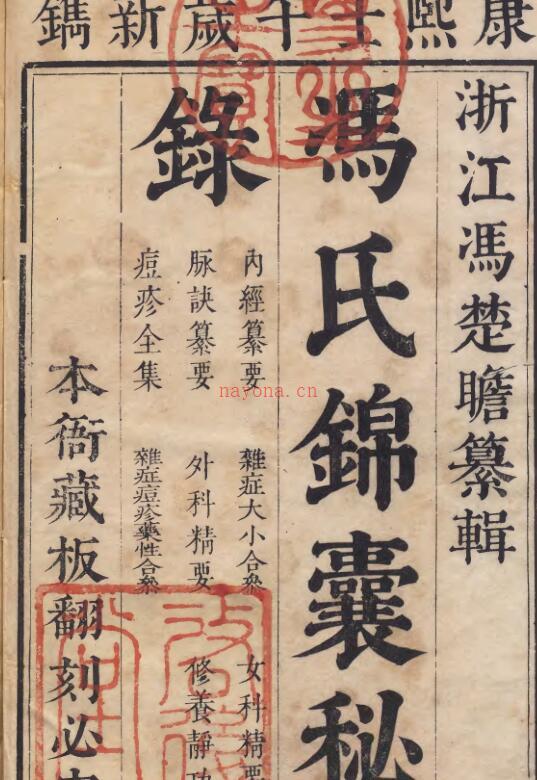 康熙壬午歲新鐫
浙江馮楚瞻纂輯
馮氏錦囊秘
錄
內經纂要
雜症大小合參
女科精要
脉訣纂要
外科精要
修養靜功
痘疹全集
雜症痘疹藥性合參
本衙藏板翻刻必
nayona.cn